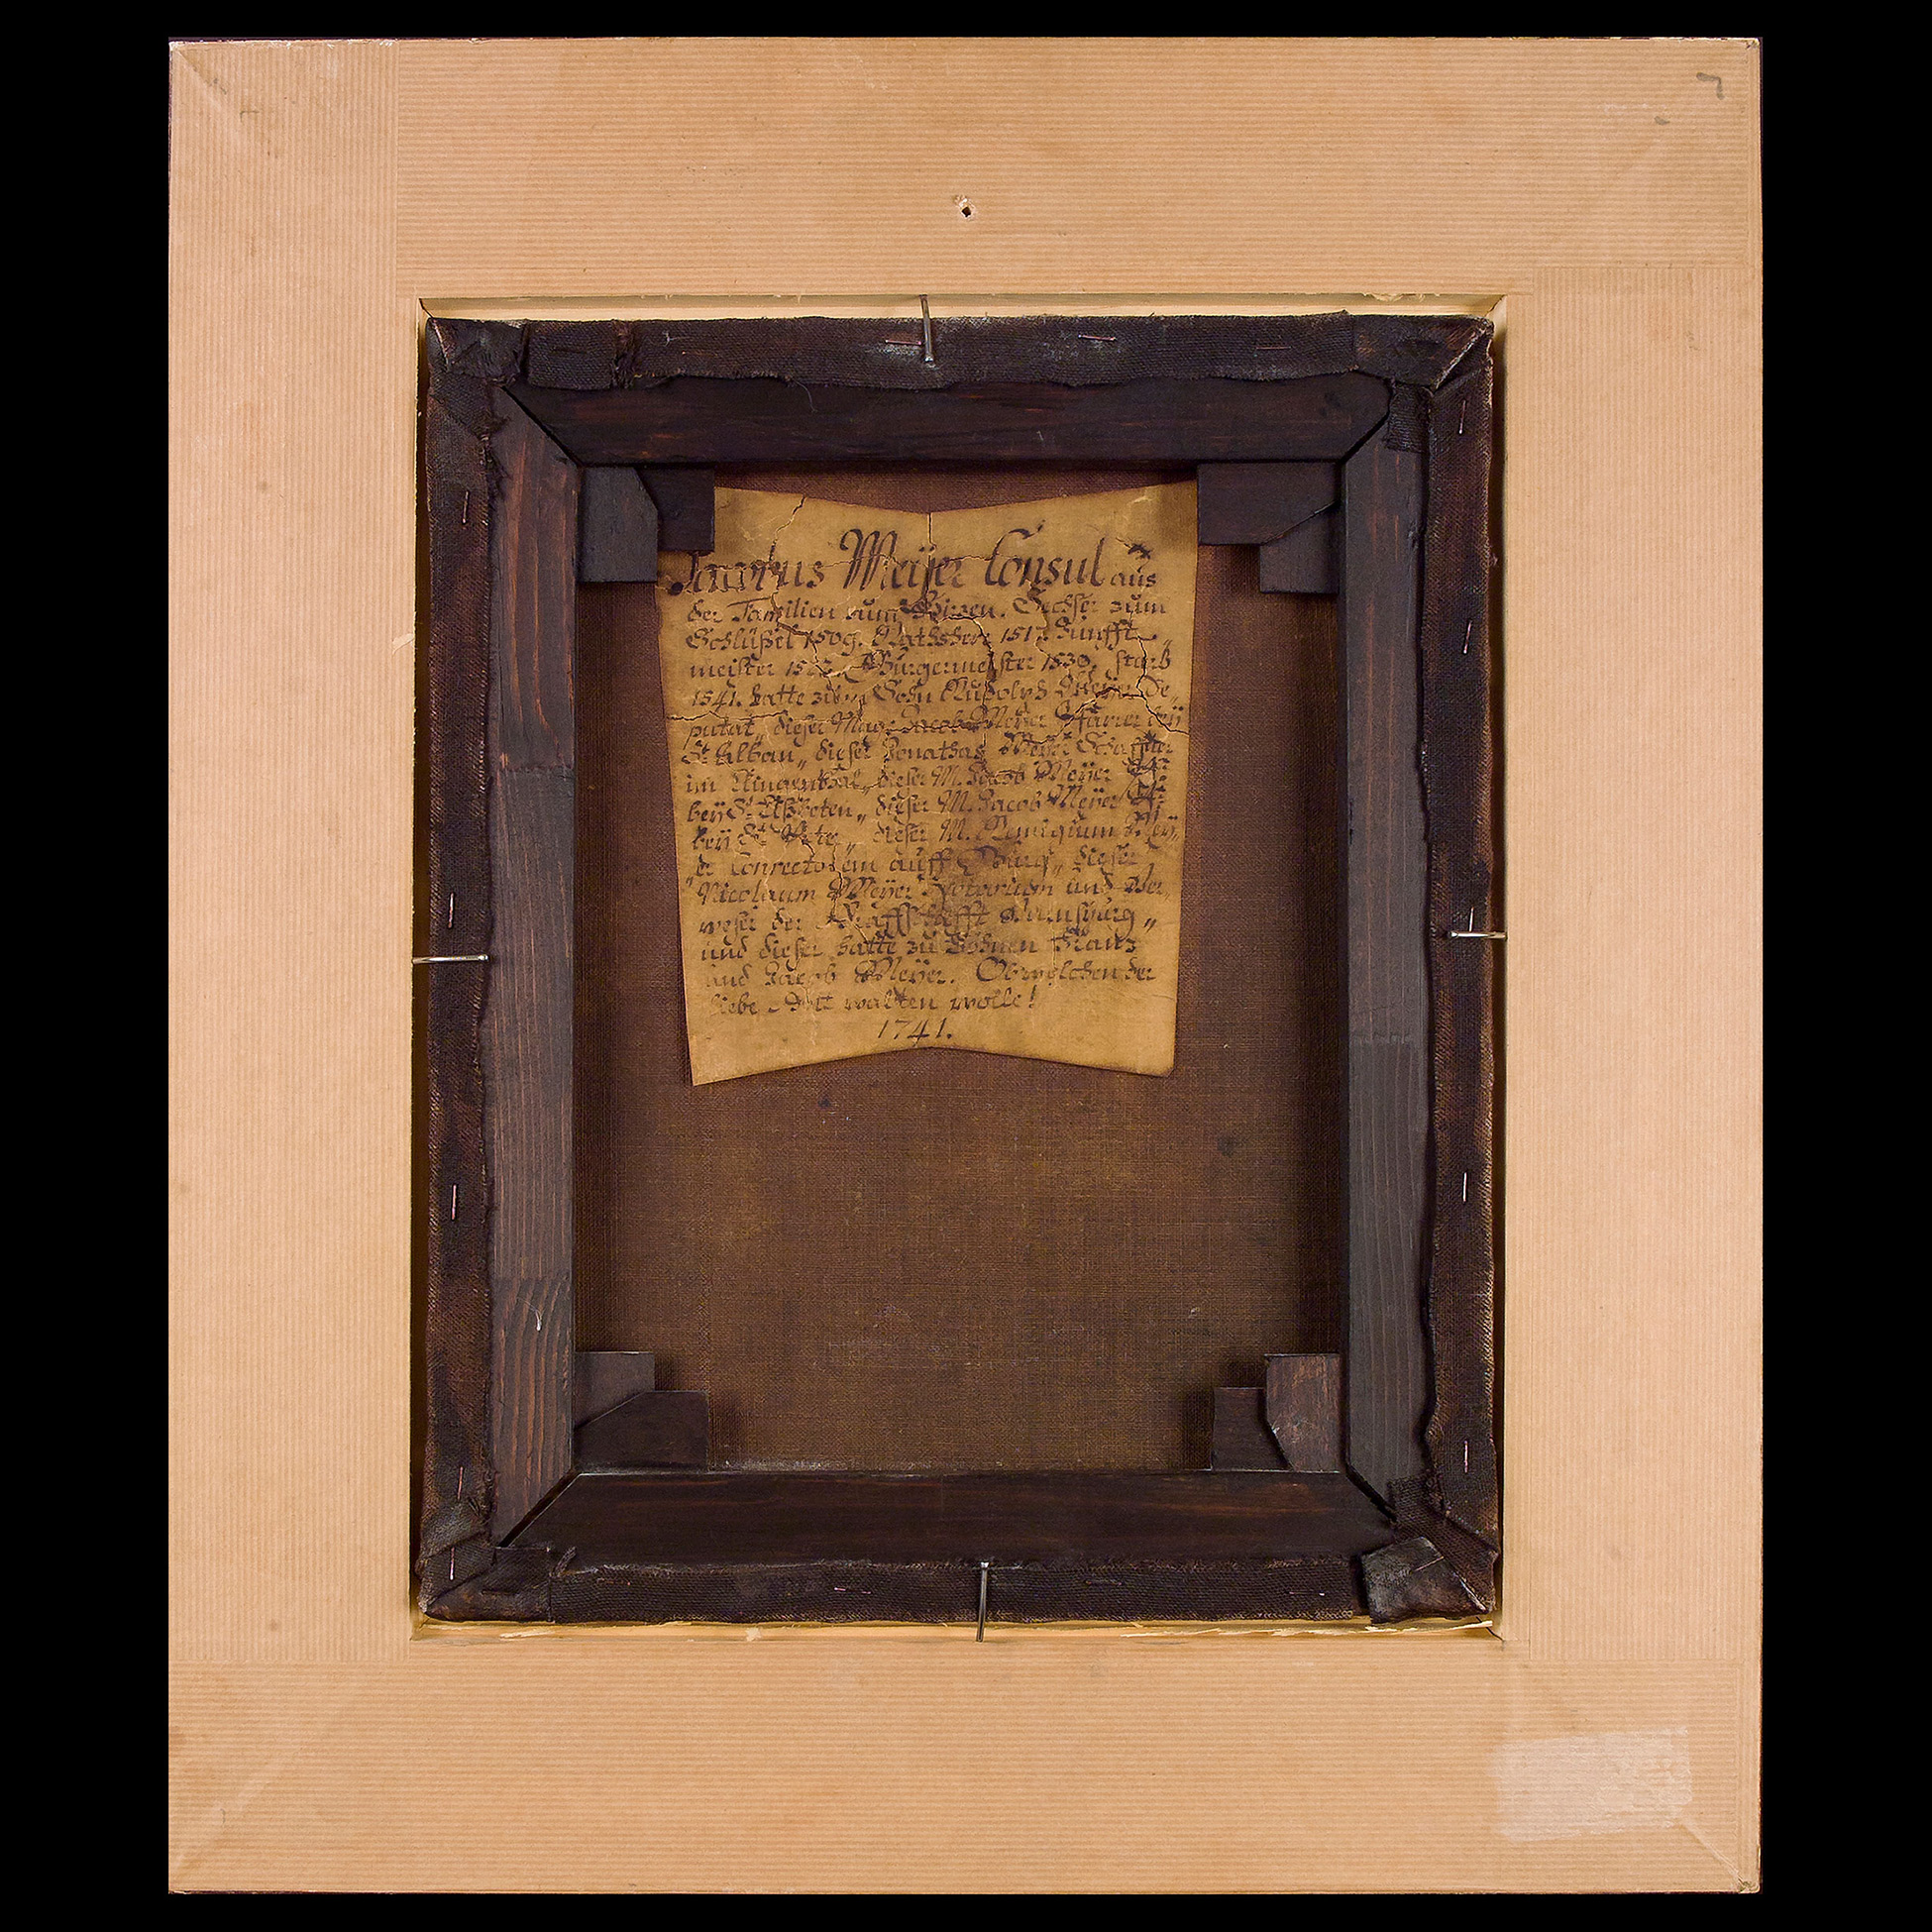 Jacobus Meÿer Consul aus
der Familien zum Hirzen. Sechser zum
Schlüßel 1509. Rathsherr 1517. Zunfft„
meister 1522. Burgermeister 1530. starb
1541. hatte zum Sohn Rudolph Meÿer De„
putat„ dieser Mag. Jacob Meÿer Pfarrer beÿ
St. Alban„ dieser Jonathas Meÿer Schaffner
im Klingenthal„ dieser M. Jacob Meÿer
beÿ St. Elßbeten„ dieser M. Jacob Meÿer
beÿ St. Peter„ dieser M. Remigium Meÿ„
„er Conrectorem auff Burg„ dieser
Nicolaum Meÿer Notarium und Ver„
weser der Graffschafft„
und dieser hatte zu Söhnen Franz
und Jacob Meÿer. Ob welchen der
liebe Gott walten wolle!
1741.